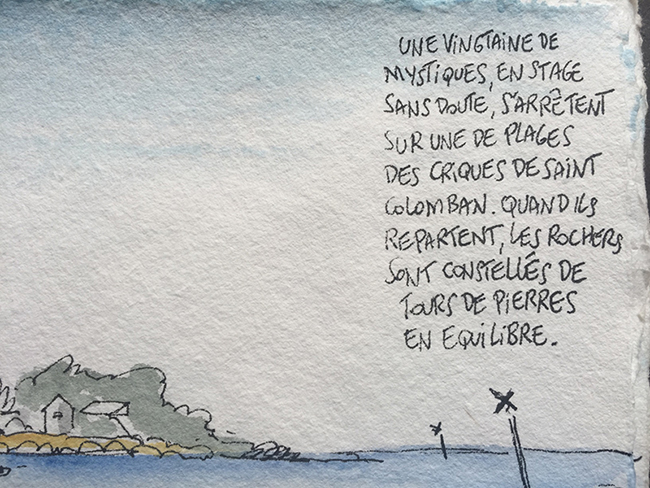 UNE VINGTAINE DE
MYSTIQUES, EN STAGE
SANS DOUTE, S'ARRÊTENT
SUR UNE DE PLAGES
DES CRIQUES DE SAINT
COLOMBAN. QUAND ILS
REPARTENT, LES ROCHERS
SONT CONSTELLÉS DE
TOURS DE PIERRES
EN EQUILIBRE.